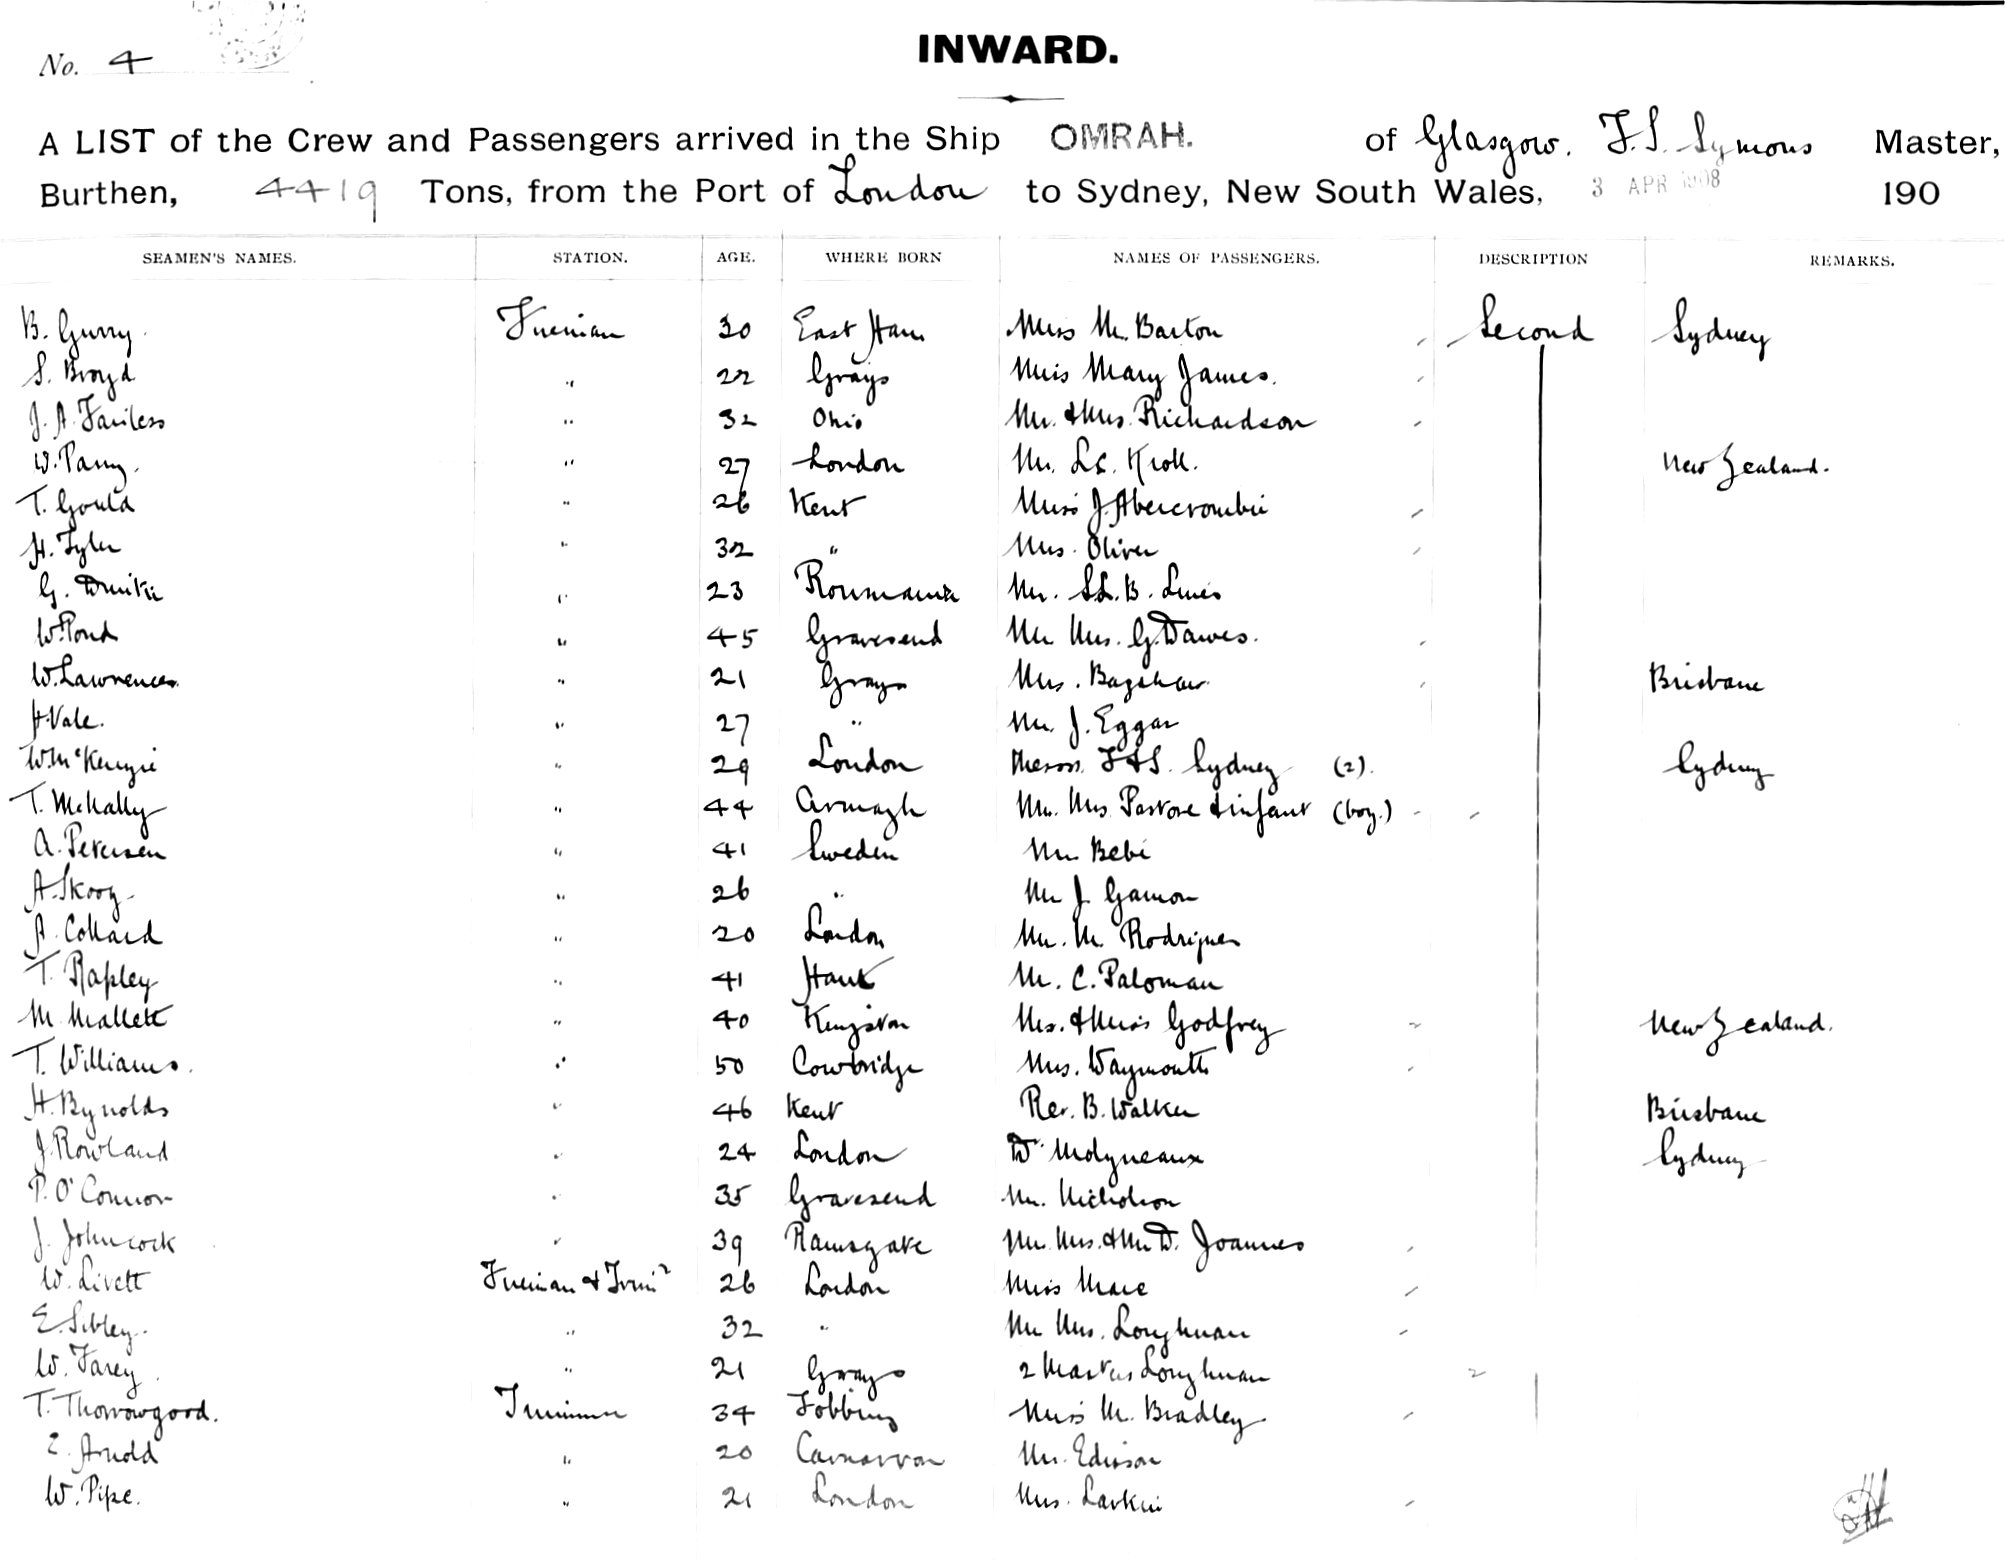 No. 4
INWARD.
A LIST of the Crew and Passengers arrived in the Ship OMRAH. of Glasgow. F.S. Symons Master,
Burthen, 4419 Tons, from the Port of London to Sydney, New South Wales, 3 APR 1908 190
SEAMEN'S NAMES. STATION. AGE. WHERE BORN NAMES OF PASSENGERS. DESCRIPTION REMARKS.
B. Gurry Fireman 30 East Ham Miss M. Barton Second Sydney
S. Broyd " 22 Grays Miss Mary James.
J. A. Fairless " 32 Ohio Mr. & Mrs. Richardson
W. Parry. " 27 London Mr. Kroll. New Zealand.
T. Gould " 26 Kent Miss J. Abercrombie
H. Tyler " 32 " Mrs. Oliver
G. " 23 Roumania Mr. S.L.B. Lines
W. Pond " 45 Gravesend Mr Mrs. G. Dawes.
W. Lawrences " 21 Grays Mrs. Bagshaw. Brisbane
H. Vale. " 27 " Mr. J. Eggar
W. McKenzie " 29 London Messrs. F & S. Sydney (2). Sydney
T. McNally " 44 Armagh Mr. Mrs Pastore & infant (boy.)
A. Petersen " 41 Sweden Mr Bebi
A. Skoog " 26 " Mr J. Gamon
A. Collard " 20 London Mr. M. Rodrigues
T. Rapley " 41 Hants Mr. C. Paloman
M. Mallett " 40 Kingston Mrs. & Miss Godfrey New Zealand.
T. Williams. " 50 Cowbridge Mrs. Waymouth
H. Bynolds " 46 Kent Rev. B. Walker Brisbane
J. Rowland " 24 London Dr Molyneaux Sydney
P. O'Connor " 35 Gravesend Mr. Nicholson
J. Johncock " 39 Ramsgate Mr. Mrs. & Mr D. Joannes
W. Livett Fireman & Trimr 26 London Miss Mace
E. Sibley. " 32 " Mr Mrs. Longhman
W. Farey. " 21 Grays 2 Masters Longhman
T. Thorrowgood. Trimmer 34 Fobbing Miss M. Bradley
E. Arnold " 20 Carnarvon Mr. Edisson
W. Pipe. " 21 London Mrs. Larkin